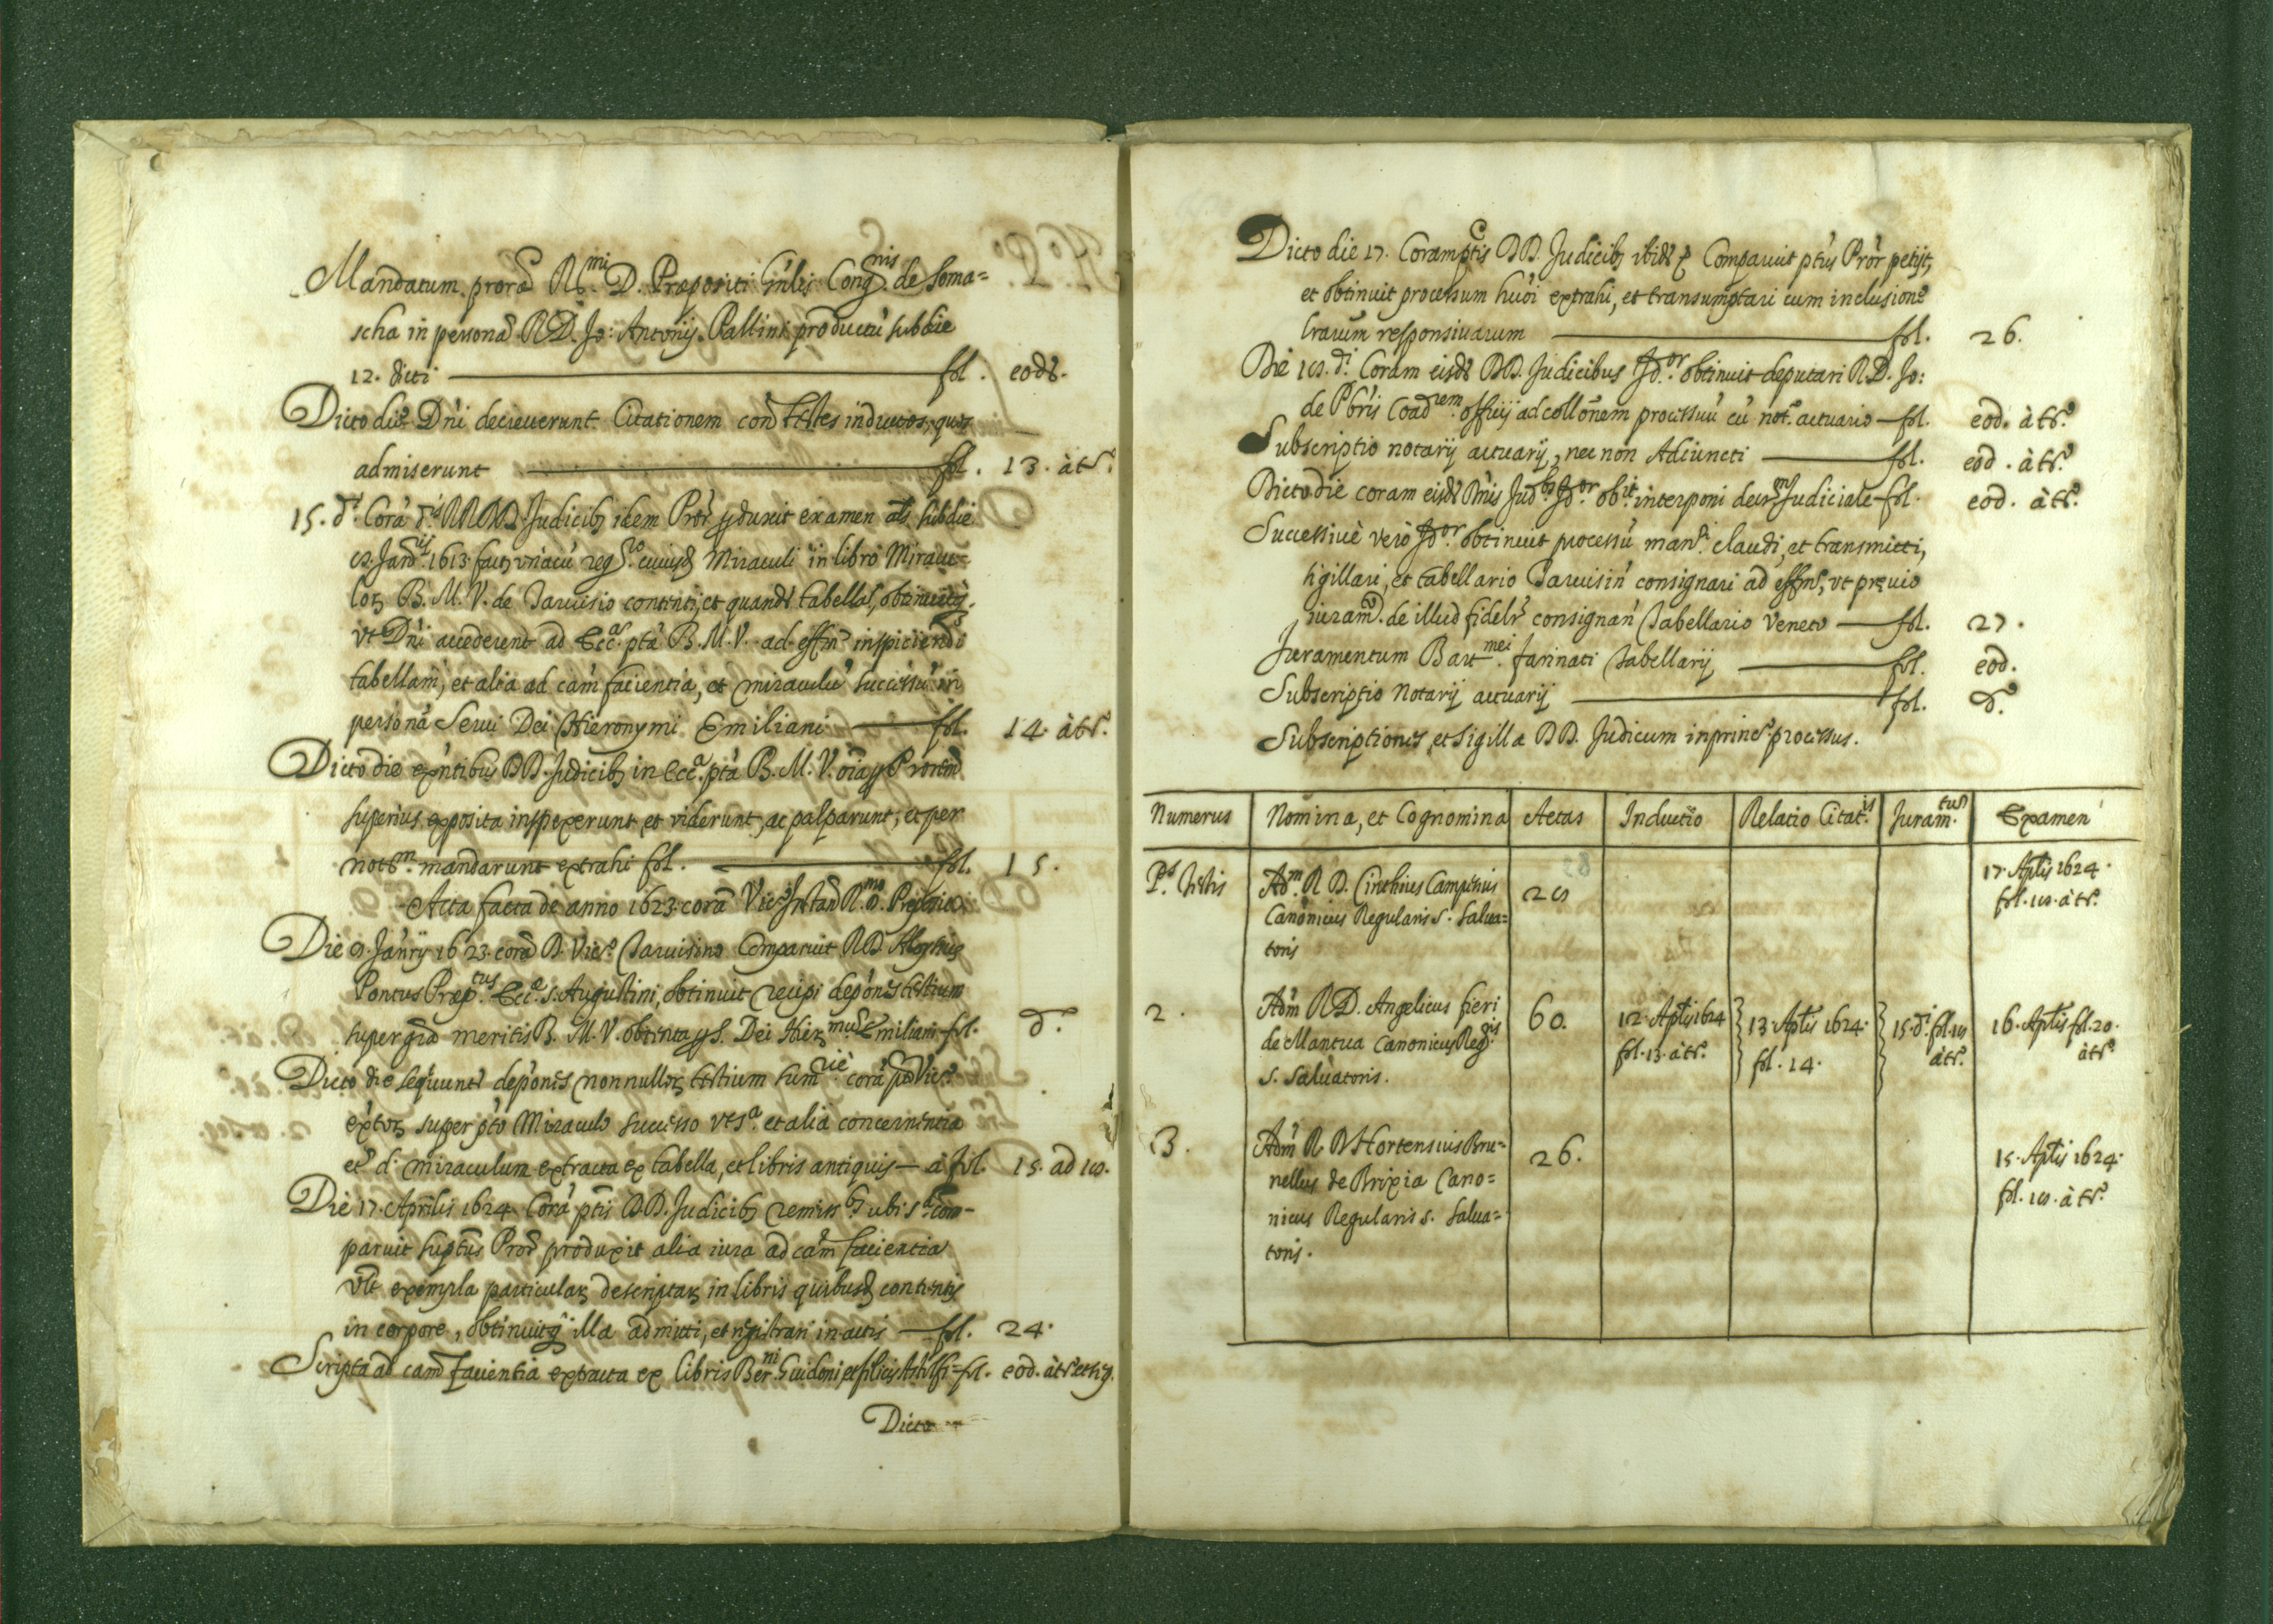 Mandatum procræ R.mi D. Præpositi Gn'lis Cong.nis de Soma=
scha in persona R.D. Jo: Antonij Pallini productu' sub die
12. dicti — fol. eod.
Dicto die D'ni decreverunt Citationem con' testes inductos, quos
admiserunt — fol. 13. à tr.
15. d.i Corà d.is RR. DD. Judicib; idem Pror' produxit examen als sub die
Jan.ij 1613. fact; unàcu' reg.ro cuiusd Miraculi in libro Miracu=
lor; B. M. V. de Tarvisio contenti, et quand' tabellas, obtinuitq;
vt D'ni accederent ad Ecc.a pta B. M. V. ad eff.m inspiciendi
tabellam, et alia ad cam facientia, et miraculu' successu' in
persona Servi Dei Hieronymi Emiliani — fol. 14. à tr.
Dicto die exn'tibus DD. Judicib; in Ecc.a pta B. M. V. oia p Prorem
superius exposita inspexerunt et viderunt, ac palparunt, et per
not.m mandarunt extrahi fol. — fol. 15.
Acta facta de anno 1623. corà Vic.
Die Jan'rij 1623. corà D. Vic.o Tarvisino Comparuit R.D.
Pontus Præp.tus Ecc.æ S. Augustini, obtinuit recipi depo'nes testium
super gra meritis B. M. V. obtenta p S. Dei Hier.mus Emiliani fol. d.o
Dicto die sequunt' depo'nes nonnullor; testium sum.riè corà p.to Vic.o
exptor; super p'to Miraculo successo vt s.a et alia concernentia
et d. miraculum extracta ex tabella, et libris antiquis — à fol. 15. ad
Die 17. Aprilis 1624. Corà ptis DD. Judicib; remiss.b; ubi s.a com=
paruit suptus Pror' produxit alia iura ad cam facientia
vlt exempla particular; descriptar; in libris quibusd contentis
in corpore, obtinuitq; illa admitti, et registrari in actis — fol. 24.
Scripta ad cam facientia extracta ex libris Ber.ni Guidoni et — fol. eod. à tr. et seq.
Dicto
Dicto die 17. Coram ptis DD. Judicib; ibid' Comparuit ptus Pror' petijt,
et obtinuit processum hu'oi extrahi, et transumptari cum inclusione
l'rarum responsivarum — fol. 26.
Die d.i Coram eisd' DD. Judicibus Pd.or obtinuit deputari R.D. Jo:
de P'bris Coad.rem officij ad collo'nem processuu' cu' not.o actuario — fol. eod. à tr.
Subscriptio notarij actuarij, nec non Adiuncti — fol. eod. à tr.
Dicto die coram eisd' D'nis Jud.bs Pd.or ob.it interponi decr.m Judiciale fol. eod. à tr.
Successivè verò Pd.or obtinuit processu' man.di claudi, et transmitti,
sigillari, et tabellario Tarvisin' consignari ad eff.m, vt prævio
iuram.o de illud fidelr' consignan' Tabellario Veneto — fol. 27.
Juramentum Bart.mei Farinati Tabellarij — fol. eod.
Subscriptio Notarij actuarij — fol. d.o
Subscriptiones, et Sigilla DD. Judicum in princ.o processus.
Numerus Nomina, et Cognomina Aetas Inductio Relatio Citat.is Juram.tum Examen
P.s testis Ad.m R. D. Cinthius Campenius
Canonicus Regularis S. Salva=
toris 17. Aplis 1624.
2. Adm' R.D. Angelicus Fieri
de Mantua Canonicus Reg.ris
S. Salvatoris. 60. 12. Aplis 1624 fol. 13. à tr. 13. Aplis 1624. fol. 14. 15. d.i fol. à tr. 16. Aplis fol. 20. à tr.
3. Adm' R. D. Hortensius Bru=
nellus de Brixia Cano=
nicus Regularis S. Salva=
toris. 26. 15. Aplis 1624.